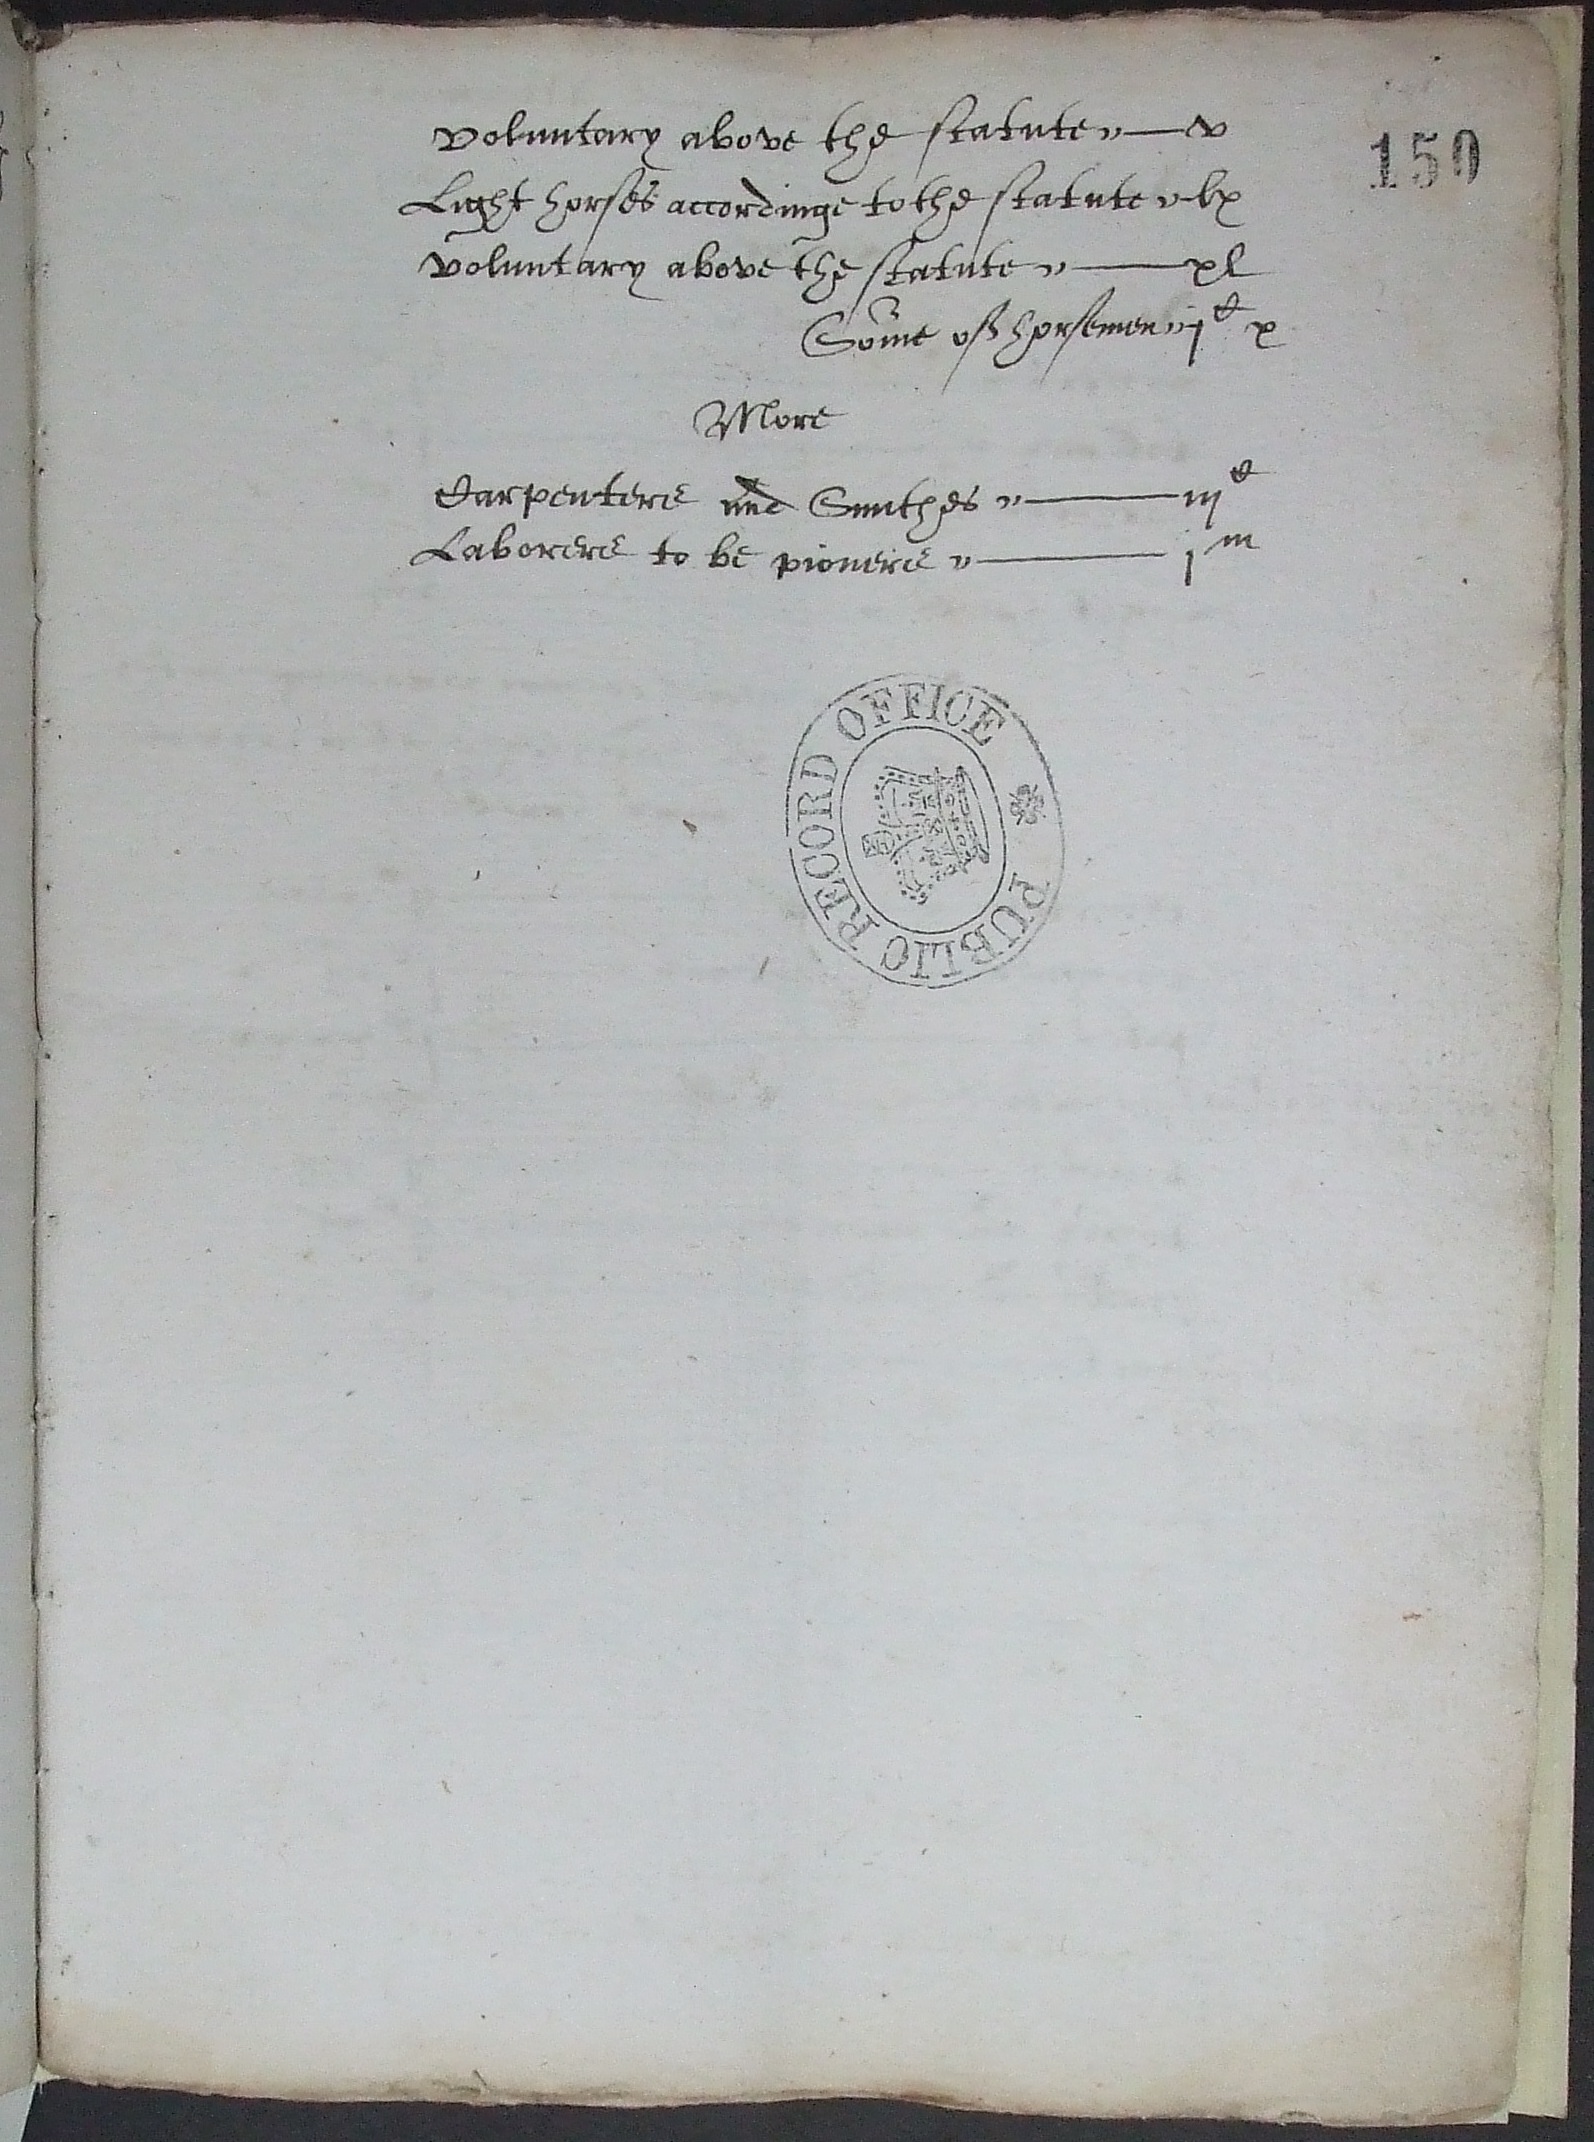 voluntary above the statute v
150
Light horses accordinge to the statute lx
voluntary above the statute xl
Some of horsemen jC x
More
Carpenters and Smithes iijC
Laborers to be pioners jm
PUBLIC RECORD OFFICE